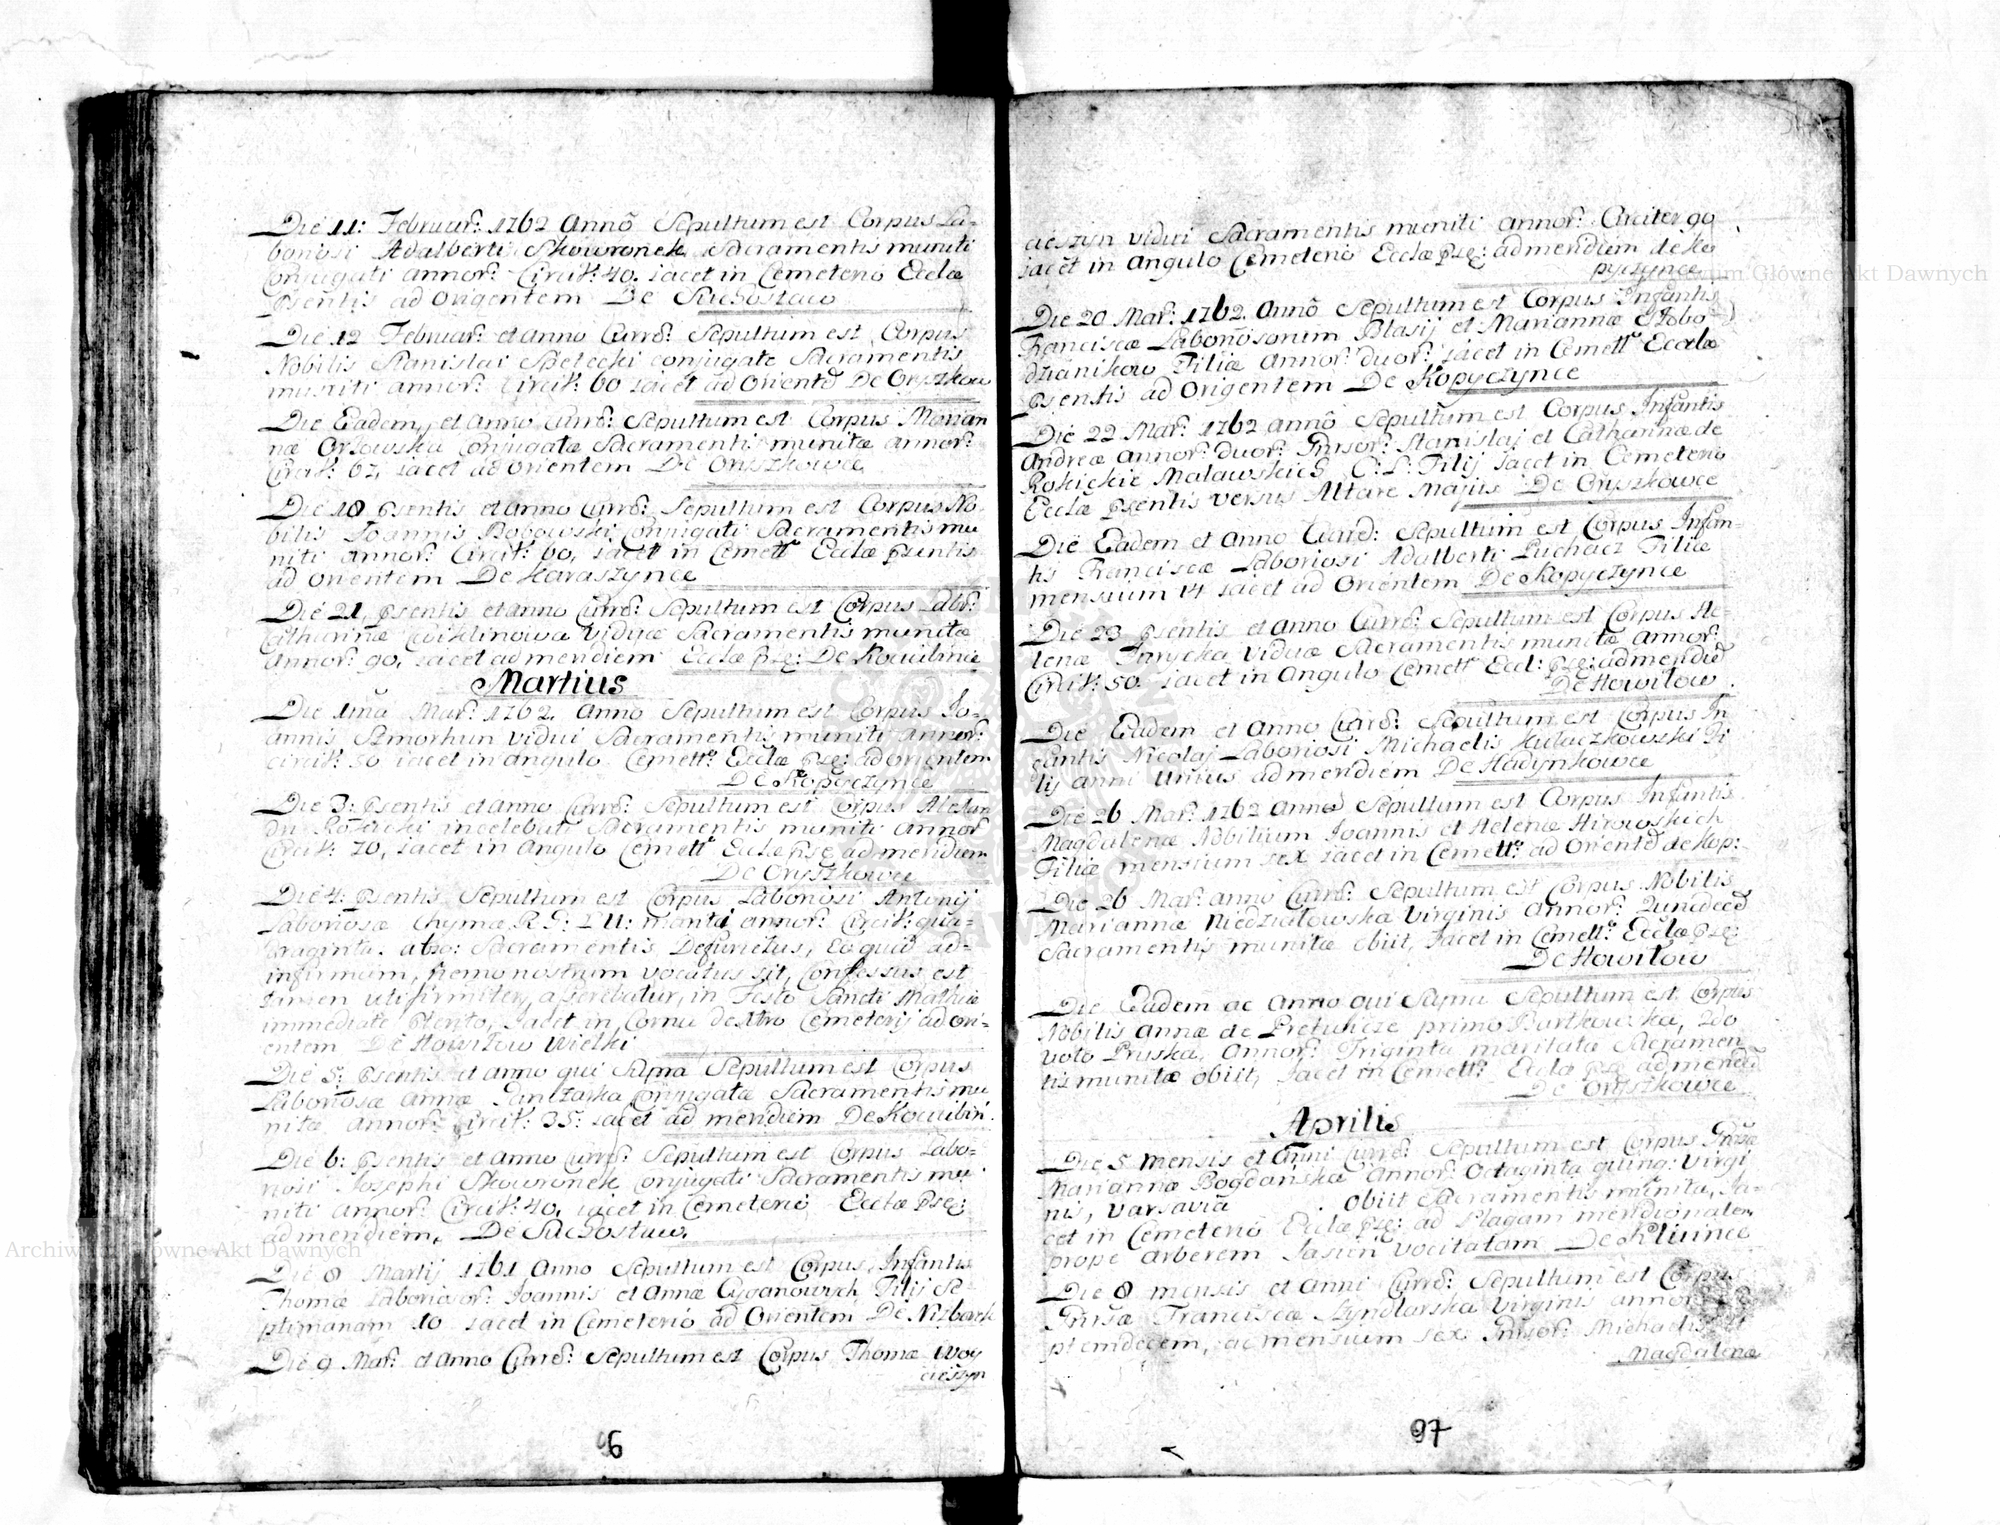 Die 11: Februar: 1762 Anno Sepultum est Corpus La-
boriosi Adalberti Skowronek Sacramentis muniti
Conjugati annor: Circit: 40. iacet in Cemeterio Eccłæ
Psentis ad Origentem De Suchostaw
Die 12 Februar: et anno Curre: Sepultum est Corpus
Nobilis Stanislai conjugate Sacramentis
muniti annor: Circit: 60 iacet ad Oriente De Oryszkow
Die Eadem, et Anno Curre: Sepultum est Corpus Marian
næ Orłowska Conjugatæ Sacramentis munitæ annor:
Circit: 67, iacet ad Orientem De Oriszkowce
Die 18 Psentis et anno Curre: Sepultum est Corpus No-
bilis Joannis Bobowski Conjugati Sacramentis mu
niti annor: Circit: 60, iacet in Cemett: Eccłæ Psentis
ad Orientem De Karaszynce
Die 21, Psentis et anno Curre: Sepultum est Corpus Labr:
Catharinæ viduæ Sacramentis munitæ
annor: 90, iacet ad meridiem Eccłæ Pse: De Kociubince
Martius
Die 1ma Mar: 1762. Anno Sepultum est Corpus Jo-
annis vidui Sacramentis muniti annor:
circit: 50 iacet in angulo Cemett: Eccłæ Pse: ad orientem
De Kopyczynce
Die 3: Psentis et anno Curre: Sepultum est Corpus Alexan
dri incelebati Sacramentis muniti annor
Circit: 70, iacet in Angulo Cemett: Eccłæ Pse ad meridiem
De Oryszkowce
Die 4: Psentis Sepultum est Corpus Laboriosi Antonij
Laboriosæ Chymæ annor: Circit: qua-
draginta. abso: Sacramentis Defunctus, Eo quid ad-
infirmum, nemo nostrum vocatus sit, Confessus est
tamen uti firmiter, asserebatur, in Festo Sancti Mathiæ
immediate Pterito, Jacet in Cornu dextro Cemeterij ad ori-
entem De Howiłow Wielki
Die 5: Psentis et anno qui Supra Sepultum est Corpus
Laboriosæ Annæ Conjugatæ Sacramentis mu
nitæ annor: Circit: 35: iacet ad meridiem De Kociubin:
Die 6: Psentis et anno Curre: Sepultum est Corpus Labo-
riosi Josephi Skowronek Conjugati Sacramentis mu
niti annor: Circit: 40, iacet in Cemeterio Eccłæ Pse:
ad meridiem, De Suchostaw.
Die 8 Martij 1761 Anno Sepultum est Corpus Infantis
Thomæ Laborioso: Joannis et Annæ Cyganowych Filij Se-
ptimanam 10 iacet in Cemeterio ad Orientem De Nizbork
Die 9 Mar: et Anno Curre: Sepultum est Corpus Thomæ Woy
cieszyn
96
cieszyn vidui Sacramentis muniti annor: Circiter 90
iacet in angulo Cemeterio Eccłæ Pse: ad meridiem de Ko
pyczynce
Die 20 Mar: 1762. Anno Sepultum est Corpus Infantis
Franciscæ Laboriosorum Blasij et Mariannæ Słobo
dzianikow Filiæ Annor: duor: iacet in Cemett: Eccłæ
Psentis ad Origentem De Kopyczynce
Die 22 Mar: 1762 Anno Sepultum est Corpus Infantis
Andreæ Annor: duor: Gnisor: Stanislaj et Catharinæ de
Rokickie Malawskich C: L: Filij Jacet in Cemeterio
Eccłæ Psentis versus Altare Majus De Oryszkowce
Die Eadem et Anno Curre: Sepultum est Corpus Infan-
tis Franciscæ Laboriosi Adalberti Puchacz Filiæ
mensium 14 iacet ad Orientem De Kopyczynce
Die 23 Psentis et anno Curre: Sepultum est Corpus He-
lenæ viduæ Sacramentis munitæ annor:
Circit: 50. iacet in Angulo Cemett: Eccl: Pse: ad meridie
De Howiłow.
Die Eadem et Anno Curre: Sepultum est Corpus In
fantis Nicolaj Laboriosi Michaelis Kulaczkowski Fi
lij anni Unius ad meridiem De Hadynkowce
Die 26 Mar: 1762 Anno Sepultum est Corpus Infantis
Magdalenæ Nobilium Joannis et Helenæ
Filiæ mensium sex iacet in Cemett: ad Oriente de Kop:
Die 26 Mar: anno Curre: Sepultum est Corpus Nobilis
Mariannæ Niedziałowska Virginis Annor:
Sacramentis munitæ obiit, Jacet in Cemett: Eccłæ Pse:
De Howiłow
Die Eadem ac Anno qui Supra Sepultum est Corpus
Nobilis Annæ de primo Bartkowska, 2do
voto Pruska, Annor: Triginta maritata Sacramen
tis munitæ obiit, Jacet in Cemett: Eccłæ Pse ad meridi
De Oryszkowce
Aprilis
Die 5 mensis et Anni Curre: Sepultum est Corpus Gnisæ
Mariannæ Bogdańska Annor: Octaginta quinq: Virgi
nis, Varsavia Obiit Sacramentis munita, Ja-
cet in Cemeterio Eccłæ Pse: ad Plagam meridionalem
prope Arberem Jasien vocitatam De Kluince
Die 8 mensis et Anni Curre: Sepultum est Corpus
Gnisæ Franciscæ Szyndlarska Virginis annor: Se
ptemdecem, ac mensium sex Gnisor: Michaelis et
Magdalenæ
97
Archiwum Główne Akt Dawnych